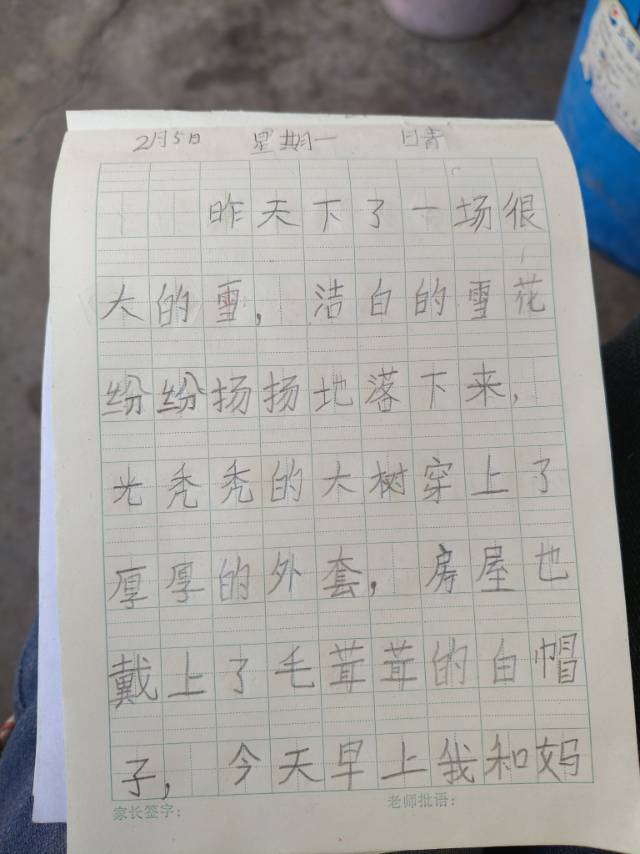 2月5日 星期一 日青
昨天下了一场很
大的雪，洁白的雪花
纷纷扬扬地落下来，
光秃秃的大树穿上了
厚厚的外套，房屋也
戴上了毛茸茸的白帽
子，今天早上我和妈
家长签字： 老师批语：